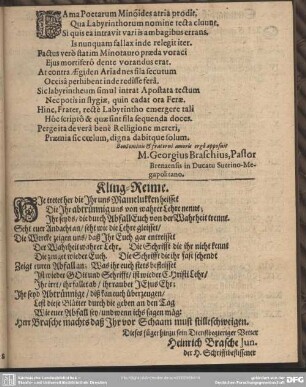 FAma Poetarum Minôidos atria prodit,
Qua Labyrinthorum nomine tecta eluunt.
Si quis ea intravit variis ambagibus errans,
Is nunquam fallax inde relegit iter.
Pactus verò statim Minotauro præda voraci
Ejus mortiferò dente vorandus erat.
At contra Ægiden Ariadnes fila secutum
Occisâ perhibent inde redisse ferâ.
Sic labyrintheum simul intrat Apostata tectum
Nec potis in stygiæ, quin cadat ora Feræ.
Hinc, Frater, rectè Labyrintho emergere tali
Hôc scriptô & quæ sint fila sequenda doces.
Perge ita de verâ benè Relligione mereri,
Præmia sic cœlum, digna dabitque solum.
Benivolentia & fraterni amoris ergô apposuit
M. Georgius Braschius, Pastor
Bremensis in Ducatu Suerino-Me-
gapolitano.
Kling-Reime.
JE tretet her die Ihr uns Mamelucken heisset
Die Ihr abtrünnig uns von wahrer Lehre nennt;
Ihr seyds, die durch Abfall Euch von der Wahrheit trennt.
Seht eure Andacht an/ seht wie die Lehr gleisset/
Die Wercke zeigen uns/ daß Ihr Euch gar entreisset
Der Wahrheit wahrer Lehr. Die Schrifft die ihr nicht kennt
Die zeuget wieder Euch. Die Schriffte die ihr fast schendt
Zeigt euren Abfall an. Was ihr euch stets befleisset
Ist wieder GOtt und Schrifft/ ist wieder Christi Lehr/
Ihr irrt/ ihr fallet ab/ ihr raubet JEsus Ehr:
Ihr seyd Abtrünnige/ diß kan euch überzeugen/
Lest diese Blätter durch die geben an den Tag
Wie euer Abfall sey/ und wenn ichs sagen mag!
Herr Brasche machts daß Ihr vor Schaam must stilleschweigen.
Dieses fügte hinzu sein Dienstbegieriger Vetter
Heinrich Brasche Jun.
der H. Schrifft beflissener